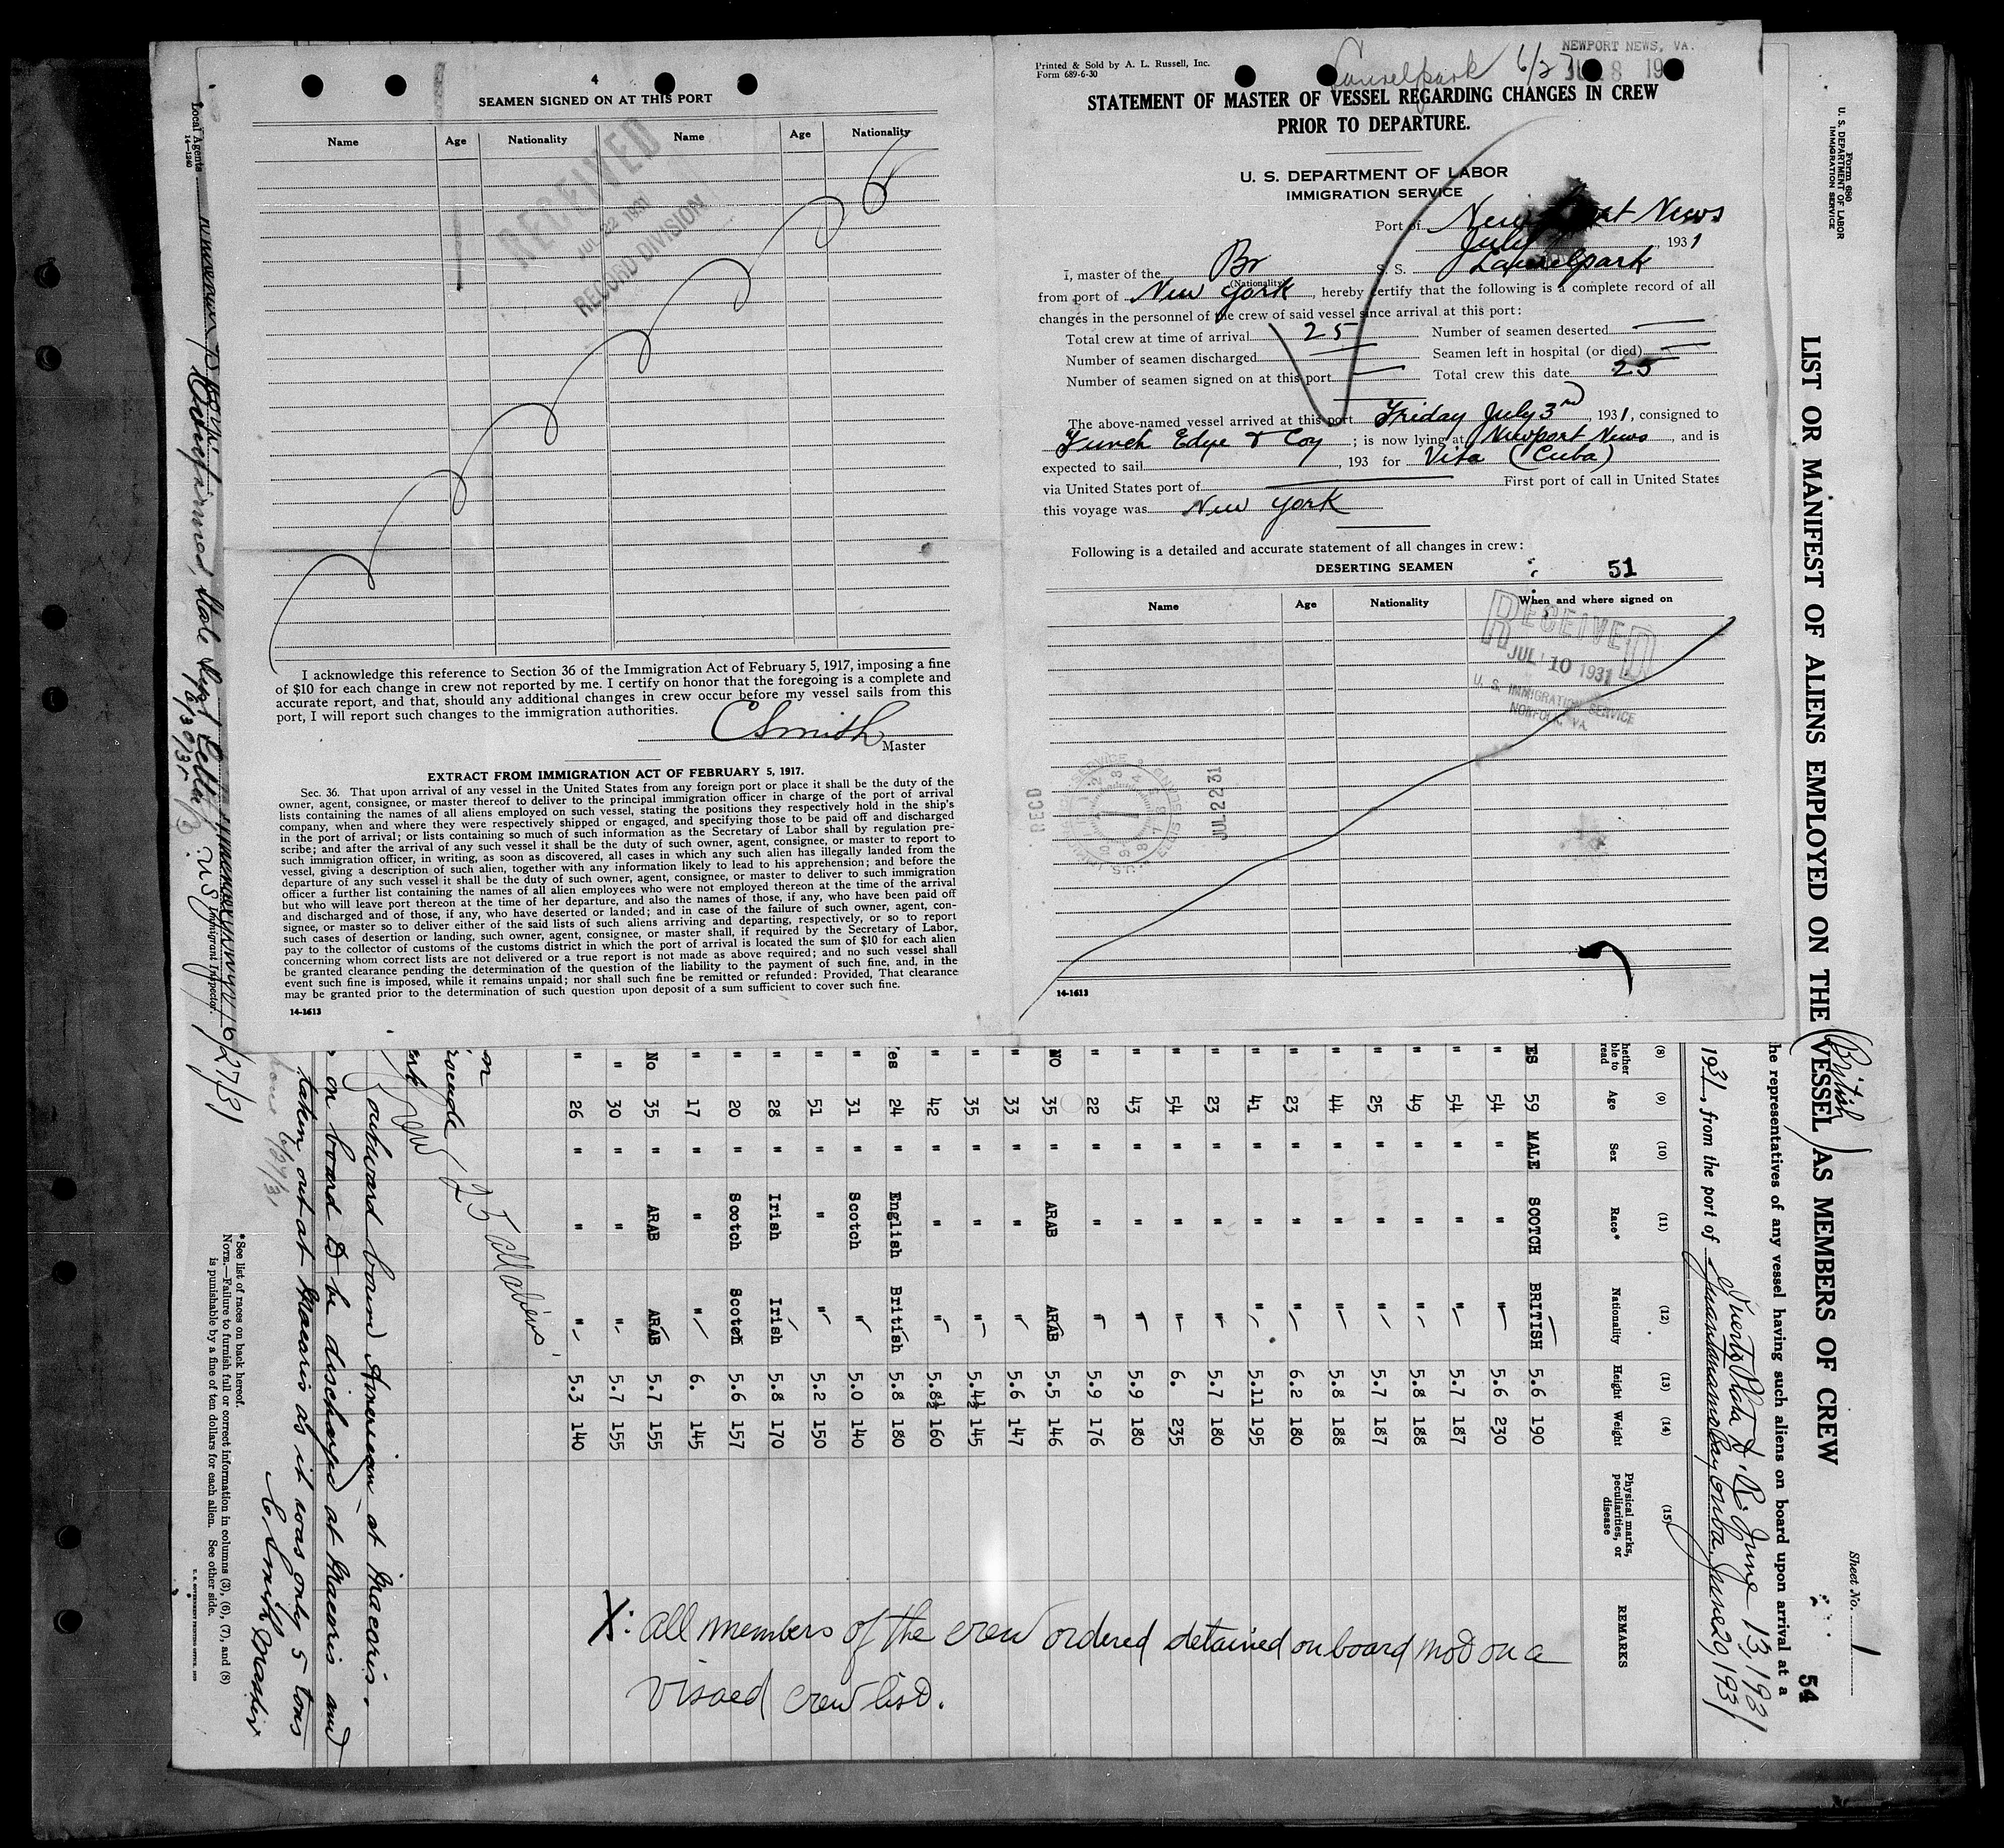 4
SEAMEN SIGNED ON AT THIS PORT
Name Age Nationality Name Age Nationality
RECEIVED
JUL 22 1931
RECORD DIVISION
I acknowledge this reference to Section 36 of the Immigration Act of February 5, 1917, imposing a fine
of $10 for each change in crew not reported by me. I certify on honor that the foregoing is a complete and
accurate report, and that, should any additional changes in crew occur before my vessel sails from this
port, I will report such changes to the immigration authorities.
C Smith
Master
EXTRACT FROM IMMIGRATION ACT OF FEBRUARY 5, 1917.
Sec. 36. That upon arrival of any vessel in the United States from any foreign port or place it shall be the duty of the
owner, agent, consignee, or master thereof to deliver to the principal immigration officer in charge of the port of arrival
lists containing the names of all aliens employed on such vessel, stating the positions they respectively hold in the ship's
company, when and where they were respectively shipped or engaged, and specifying those to be paid off and discharged
in the port of arrival; or lists containing so much of such information as the Secretary of Labor shall by regulation pre-
scribe; and after the arrival of any such vessel it shall be the duty of such owner, agent, consignee, or master to report to
such immigration officer, in writing, as soon as discovered, all cases in which any such alien has illegally landed from the
vessel, giving a description of such alien, together with any information likely to lead to his apprehension; and before the
departure of any such vessel it shall be the duty of such owner, agent, consignee, or master to deliver to such immigration
officer a further list containing the names of all alien employees who were not employed thereon at the time of the arrival
but who will leave port thereon at the time of her departure, and also the names of those, if any, who have been paid off
and discharged and of those, if any, who have deserted or landed; and in case of the failure of such owner, agent, con-
signee, or master so to deliver either of the said lists of such aliens arriving and departing, respectively, or so to report
such cases of desertion or landing, such owner, agent, consignee, or master shall, if required by the Secretary of Labor,
pay to the collector of customs of the customs district in which the port of arrival is located the sum of $10 for each alien
concerning whom correct lists are not delivered or a true report is not made as above required; and no such vessel shall
be granted clearance pending the determination of the question of the liability to the payment of such fine, and, in the
event such fine is imposed, while it remains unpaid; nor shall such fine be remitted or refunded: Provided, That clearance
may be granted prior to the determination of such question upon deposit of a sum sufficient to cover such fine.
14-1613
Printed & Sold by A. L. Russell, Inc.
Form 689-6-30
Laurelpark 6/27
NEWPORT NEWS, VA.
STATEMENT OF MASTER OF VESSEL REGARDING CHANGES IN CREW
PRIOR TO DEPARTURE.
U. S. DEPARTMENT OF LABOR
IMMIGRATION SERVICE
Port of Newport News
July , 1931
I, master of the Br S. S. Laurelpark
(Nationality)
from port of New York, hereby certify that the following is a complete record of all
changes in the personnel of the crew of said vessel since arrival at this port:
Total crew at time of arrival 25 Number of seamen deserted —
Number of seamen discharged — Seamen left in hospital (or died) —
Number of seamen signed on at this port — Total crew this date 25
The above-named vessel arrived at this port Friday July 3rd, 1931, consigned to
Funch Edye & Coy; is now lying at Newport News, and is
expected to sail , 193 for Vita (Cuba)
via United States port of — First port of call in United States
this voyage was New York
Following is a detailed and accurate statement of all changes in crew:
DESERTING SEAMEN 51
Name Age Nationality When and where signed on
RECEIVED
JUL 10 1931
U. S. IMMIGRATION SERVICE
NORFOLK, VA
RECD
JUL 22 31
14-1613
Form 680
U. S. DEPARTMENT OF LABOR
IMMIGRATION SERVICE
Sheet No. 1
54
LIST OR MANIFEST OF ALIENS EMPLOYED ON THE (British) VESSEL AS MEMBERS OF CREW
he representatives of any vessel having such aliens on board upon arrival at a
Puerto Plata D. R. June 13, 1931
1931, from the port of Guantanamo Bay Cuba, June 20, 1931
(8) (9) (10) (11) (12) (13) (14) (15)
hether ble to read Age Sex Race* Nationality Height Weight Physical marks, peculiarities, or disease REMARKS
ES 59 MALE SCOTCH BRITISH 5.6 190
" 54 " " " 5.6 230
" 54 " " " 5.7 187
" 49 " " " 5.8 188
" 25 " " " 5.7 187
" 44 " " " 5.8 188
" 23 " " " 6.2 180
" 41 " " " 5.11 195
" 23 " " " 5.7 180
" 54 " " " 6. 235
" 43 " " " 5.9 180
" 22 " " " 5.9 176
NO 35 " ARAB ARAB 5.5 146
" 33 " " " 5.6 147
" 35 " " " 5.4½ 145
" 42 " " " 5.8½ 160
es 24 " English British 5.8 180
" 31 " Scotch " 5.0 140
" 51 " " " 5.2 150
" 28 " Irish Irish 5.8 170
" 20 " Scotch Scotch 5.6 157
" 17 " " " 6. 145
No 35 " ARAB ARAB 5.7 155
" 30 " " " 5.7 155
" 26 " " " 5.3 140
X: all members of the crew ordered detained on board not on a
visaed crew list.
25 all aliens
outward bound American at Macoris.
on board to be discharged at Macoris and
taken out at Macoris as it was only 5 tons
C. Smith Master
*See list of races on back hereof.
NOTE.—Failure to furnish full or correct information in columns (3), (6), (7), and (8)
is punishable by a fine of ten dollars for each alien. See other side.
U. S. GOVERNMENT PRINTING OFFICE
6/27/31
Immigrant Inspector.
Local Agents
14-1240